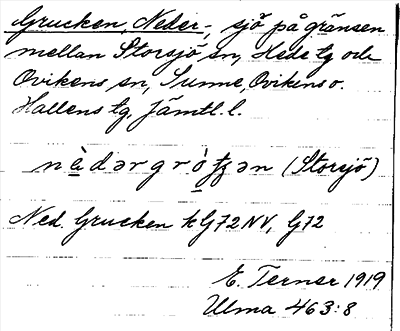 Grucken, Neder-, sjö på gränsen
mellan Storsjö sn, Hede tg och
Ovikens sn, Sunne, Ovikens o.
Hallens tg, Jämtl. l.
(Storsjö)
Ned. Grucken kG72NV, G72
E. Terner 1919
Ulma 463:8